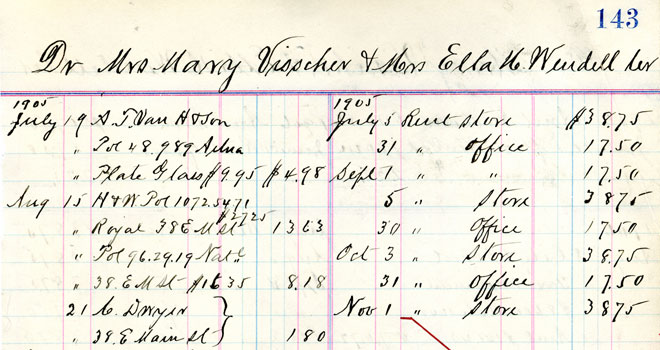 143
Dr Mrs Mary Visscher & Mrs Ella H Wendell
1905
July 19 A. T. Van H & Son
" Pol 48.989 Aetna
" Plate Glass $9.95 $4.98
Aug 15 H & W Pol 10725471
$27.25
" Royal 38 E M St 13 63
" Pol 96.29.19 Nat'l
" 38. E M St $16 35 8.18
21 C. Dwyer }
" 38. E Main St } 1 80
1905
July 5 Rent Store $38.75
31 " Office 17.50
Sept 1 " " 17.50
5 " Store 38 75
30 " Office 17 50
Oct 3 " Store 38.75
31 " Office 17.50
Nov 1 " Store 38 75